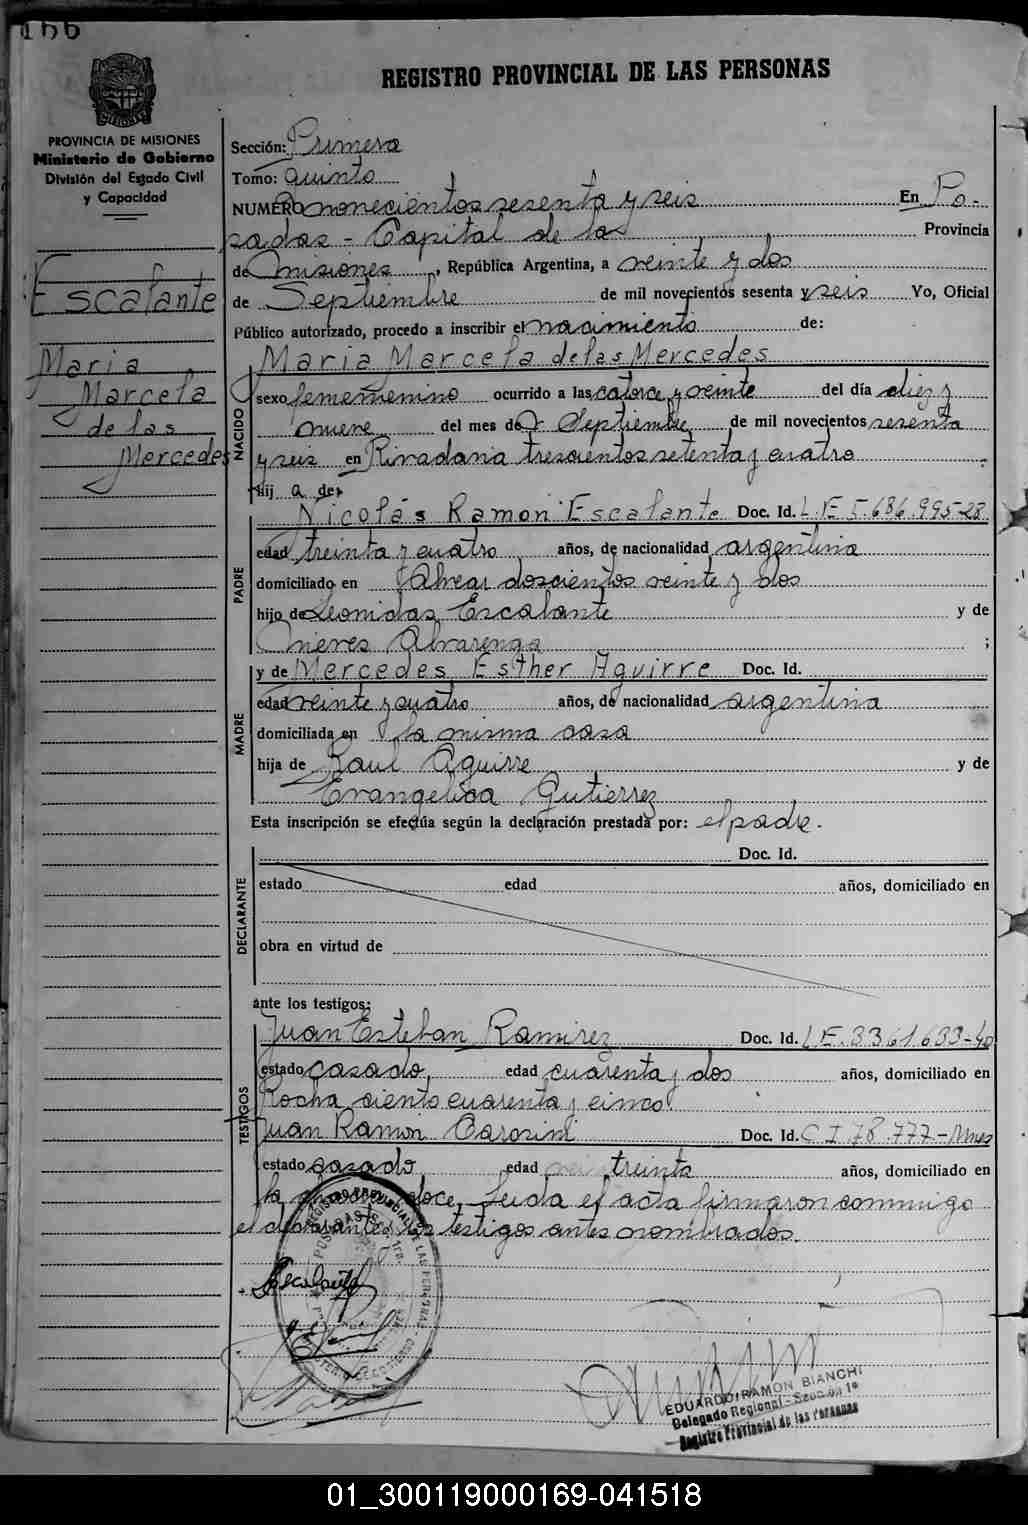 166
REGISTRO PROVINCIAL DE LAS PERSONAS
PROVINCIA DE MISIONES
Ministerio de Gobierno
División del Estado Civil
y Capacidad
Escalante
Maria
Marcela
de las
Mercedes
Sección: Primera
Tomo: quinto
NUMERO novecientos sesenta y seis En Po-
sadas - Capital de la Provincia
de Misiones, República Argentina, a veinte y dos
de Septiembre de mil novecientos sesenta y seis Yo, Oficial
Público autorizado, procedo a inscribir el nacimiento de:
NACIDO
Maria Marcela de las Mercedes
sexo fememenino ocurrido a las catorce y veinte del día diez y
nueve del mes de Septiembre de mil novecientos sesenta
y seis en Rivadavia trescientos setenta y cuatro
hij a de:
PADRE
Nicolás Ramon Escalante Doc. Id. L.E 5.686.995-28
edad treinta y cuatro años, de nacionalidad argentina
domiciliado en Alvear doscientos veinte y dos
hijo de Leonidas Escalante y de
Nieves Alvarenga ;
MADRE
y de Mercedes Esther Aguirre Doc. Id.
edad veinte y cuatro años, de nacionalidad argentina
domiciliada en la misma casa
hija de Raul Aguirre y de
Evangelica Gutierrez
Esta inscripción se efectúa según la declaración prestada por: el padre.
DECLARANTE
Doc. Id.
estado edad años, domiciliado en
obra en virtud de
ante los testigos:
TESTIGOS
Juan Esteban Ramirez Doc. Id. L.E. 3361.633-40
estado casado edad cuarenta y dos años, domiciliado en
Rocha ciento cuarenta y cinco
Juan Ramon Doc. Id. C I 78.777-Mnes
estado casado edad treinta años, domiciliado en
la doce, Leida el acta firmaron conmigo
el declarante y los testigos antes nombrados.
Escalante
EDUARDO RAMON BIANCHI
Delegado Regional - Sección 1ª
Registro Provincial de las Personas
01_300119000169-041518